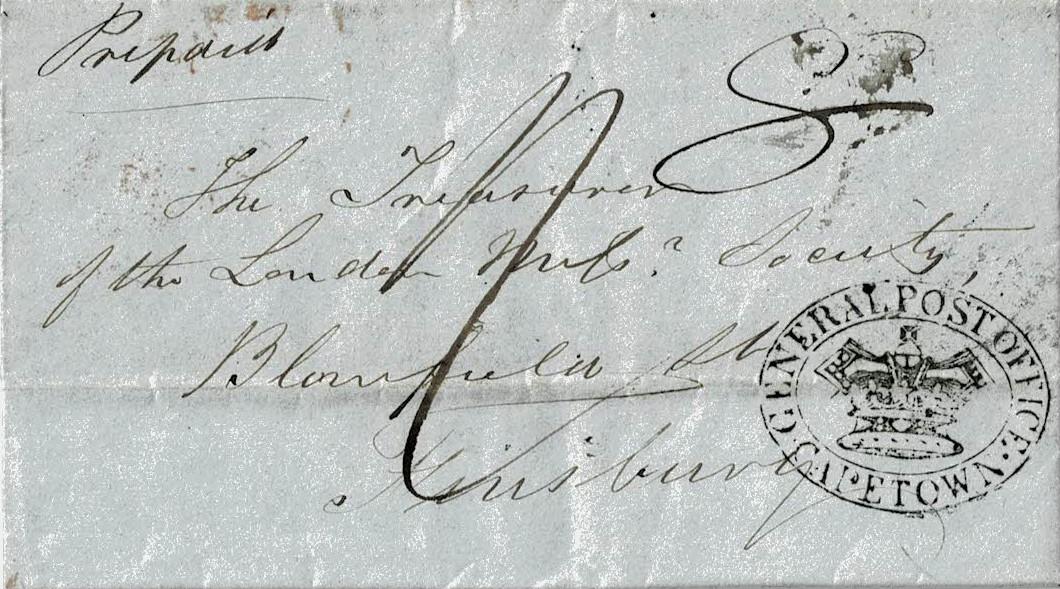 Prepaid
8
The Treasurer
of the London Miss.y Society,
Blomfield St
Finsbury
GENERAL POST OFFICE. CAPETOWN.